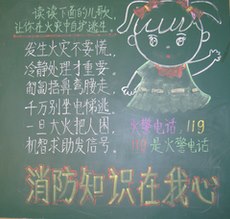 读读下面的儿歌
让你在火灾中自护逃生
发生火灾不要慌，
冷静处理才重要。
匍匐捂鼻弯腰走，
千万别坐电梯逃，
一旦大火把人困，
机智求助发信号。
火警电话，119
119是火警电话
消防知识在我心